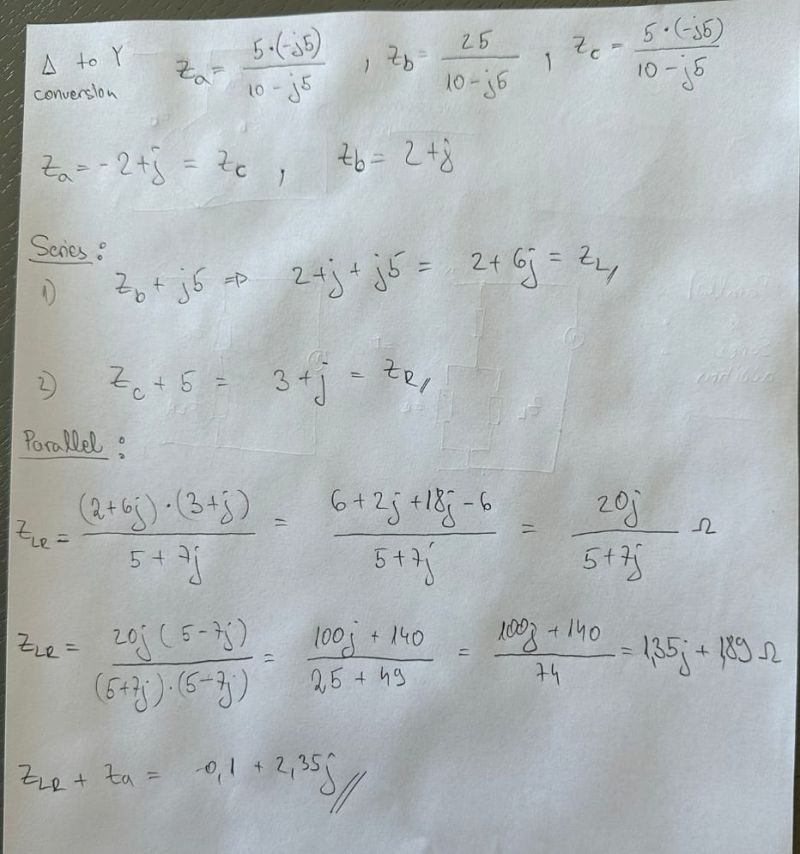 Δ to Y conversion Za = 5·(-j5) / 10 - j5 , Zb = 25 / 10 - j5 , Zc = 5·(-j5) / 10 - j5
Za = -2+j = Zc , Zb = 2+j
Series:
1) Zb + j5 ⇒ 2+j+j5 = 2+6j = ZL//
2) Zc + 5 = 3+j = ZR//
Parallel:
ZLR = (2+6j)·(3+j) / 5+7j = 6+2j+18j-6 / 5+7j = 20j / 5+7j Ω
ZLR = 20j(5-7j) / (5+7j)·(5-7j) = 100j+140 / 25+49 = 100j+140 / 74 = 1,35j + 1,89 Ω
ZLR + Za = -0,1 + 2,35j//